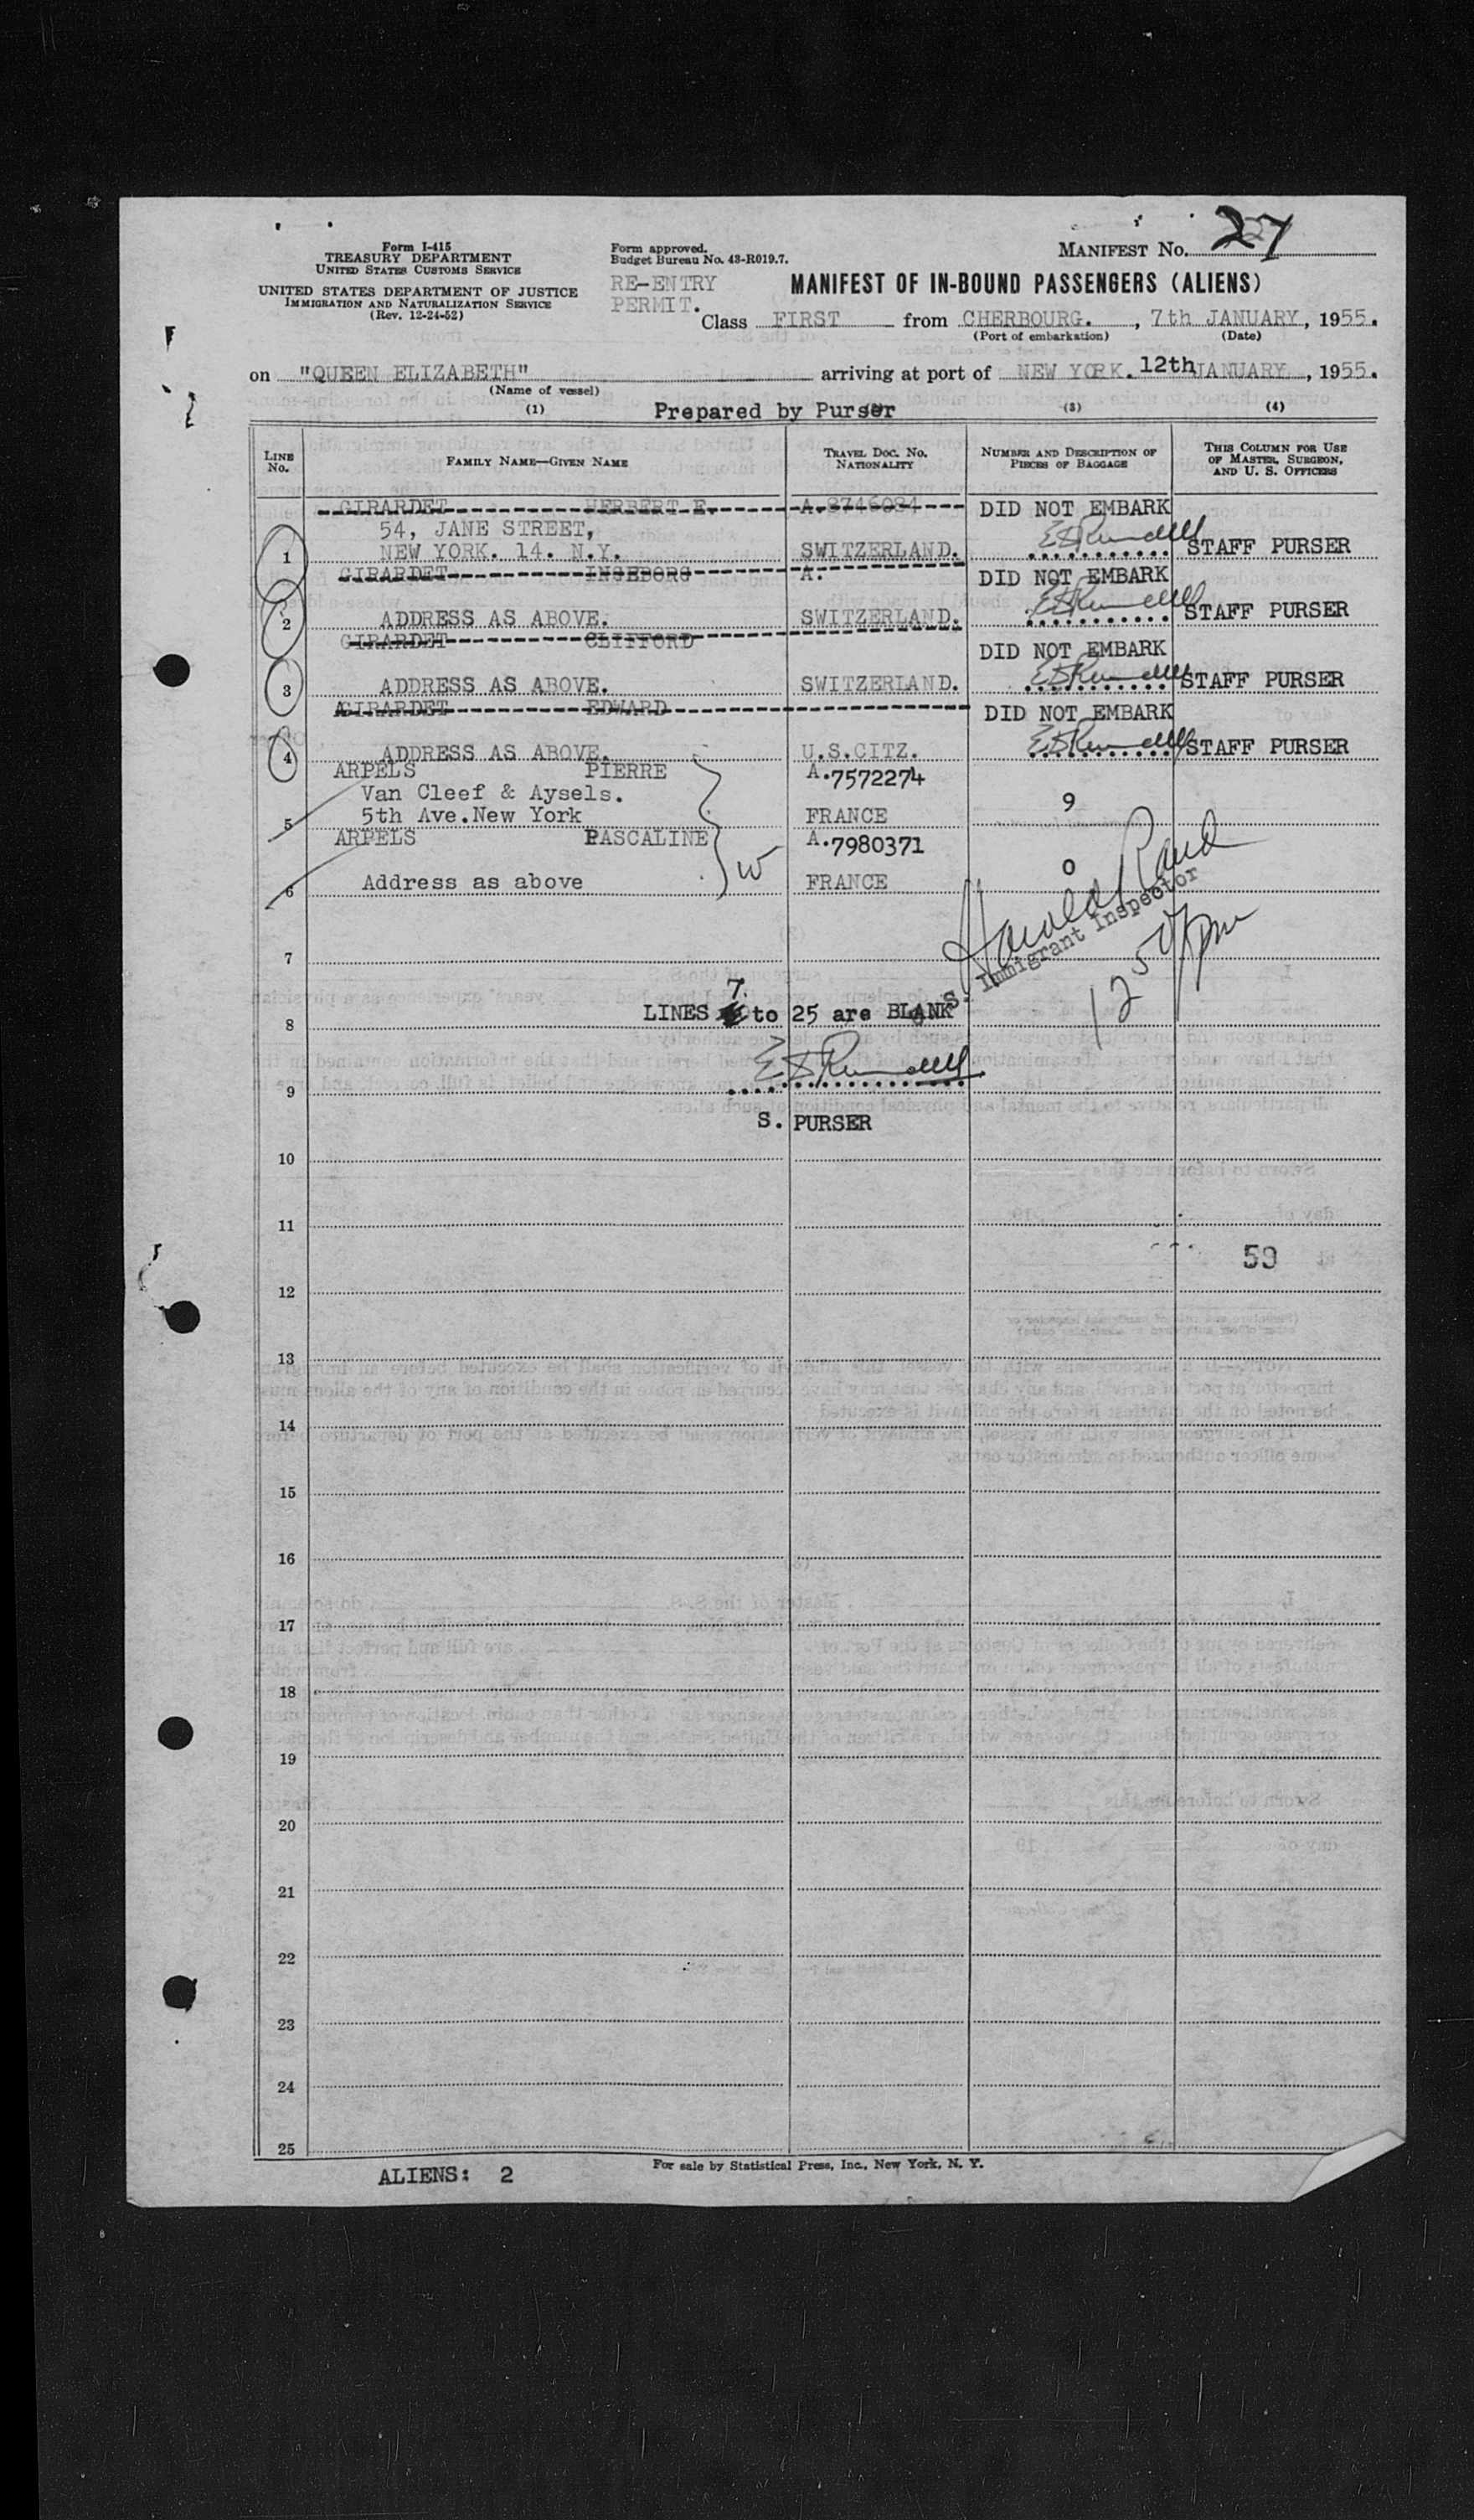 Form I-415
TREASURY DEPARTMENT
UNITED STATES CUSTOMS SERVICE
UNITED STATES DEPARTMENT OF JUSTICE
IMMIGRATION AND NATURALIZATION SERVICE
(Rev. 12-24-52)
Form approved.
Budget Bureau No. 43-R019.7.
RE-ENTRY
PERMIT.
MANIFEST No. 27
MANIFEST OF IN-BOUND PASSENGERS (ALIENS)
Class FIRST from CHERBOURG. , 7th JANUARY, 1955.
(Port of embarkation) (Date)
on "QUEEN ELIZABETH" arriving at port of NEW YORK. 12th JANUARY , 1955.
(Name of vessel)
(1) Prepared by Purser (3) (4)
LINE No. FAMILY NAME—GIVEN NAME TRAVEL DOC. No. NATIONALITY NUMBER AND DESCRIPTION OF PIECES OF BAGGAGE THIS COLUMN FOR USE OF MASTER, SURGEON, AND U. S. OFFICERS
GIRARDET HERBERT E. A.8746084 DID NOT EMBARK
54, JANE STREET,
1 NEW YORK. 14. N.Y. SWITZERLAND. STAFF PURSER
GIRARDET INGEBORG A. DID NOT EMBARK
2 ADDRESS AS ABOVE. SWITZERLAND. STAFF PURSER
GIRARDET CLIFFORD DID NOT EMBARK
3 ADDRESS AS ABOVE. SWITZERLAND. STAFF PURSER
GIRARDET EDWARD DID NOT EMBARK
4 ADDRESS AS ABOVE. U.S.CITZ. STAFF PURSER
ARPELS PIERRE A.7572274
Van Cleef & Aysels. 9
5 5th Ave.New York FRANCE
ARPELS PASCALINE A.7980371
0
6 Address as above W FRANCE
Harold Rand
S. Immigrant Inspector
7
LINES 7. to 25 are BLANK
8
9
S. PURSER
10
11
59
12
13
14
15
16
17
18
19
20
21
22
23
24
25
For sale by Statistical Press, Inc., New York, N. Y.
ALIENS: 2